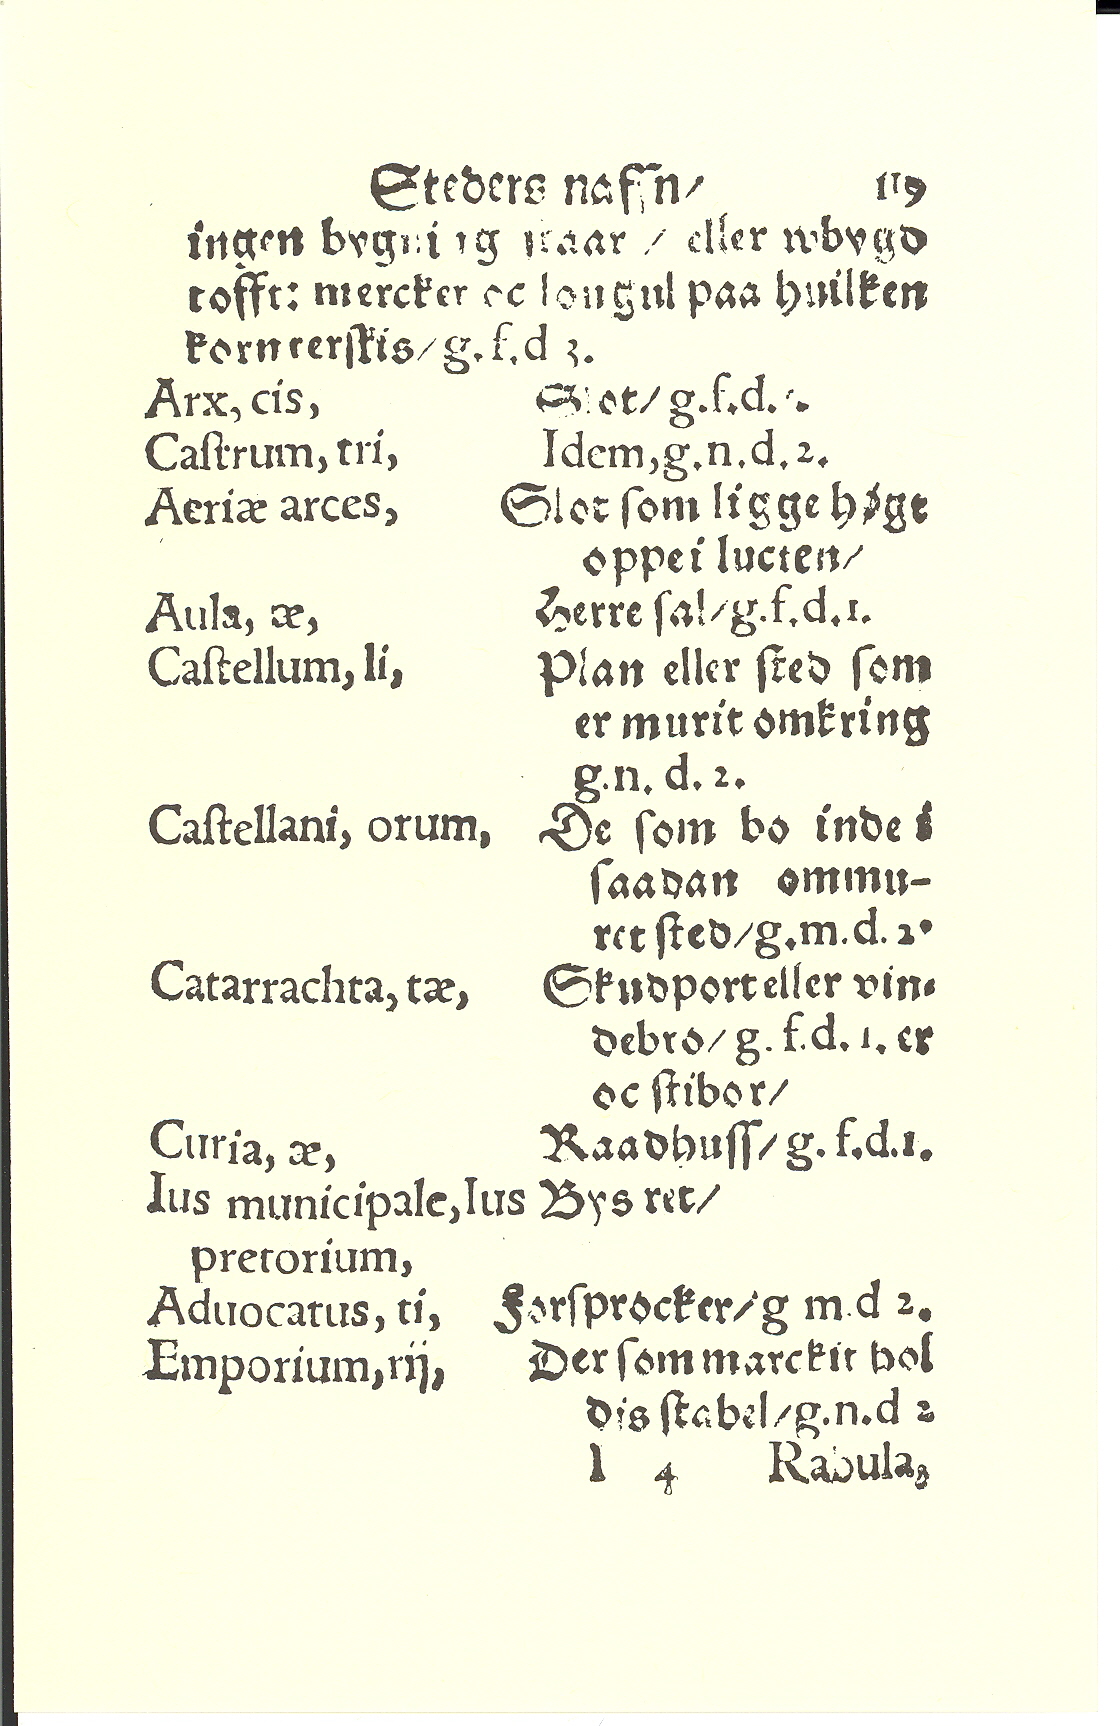 Steders naffn/ 119
ingen bygning staar / eller wbygd
tofft: mercker oc lougul paa huilken
korn terſkis/ g. f. d 3.
Arx, cis, Slot/ g.f.d.
Caſtrum, tri, Idem, g.n.d.2.
Aeriæ arces, Slot ſom ligge høge
oppe i lucten/
Aula, æ, Herre ſal/g.f.d.1.
Caſtellum, li, Plan eller ſted ſom
er murit omkring
g.n. d. 2.
Caſtellani, orum, De ſom bo inde i
ſaadan ommu-
ret ſted/g.m.d. 2.
Catarrachta, tæ, Skudport eller vin-
debro/ g. f.d. 1. er
oc ſtibor/
Curia, æ, Raadhuſſ/ g. f.d.1.
Ius municipale, Ius Bys ret/
pretorium,
Aduocatus, ti, Forſprocker/ g m.d 2.
Emporium, rij, Der ſom marckit hol
dis ſtabel/g.n.d 2
l 4 Rabula,